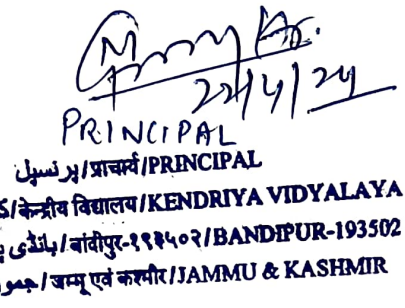 22/4/24
PRINCIPAL
پرنسپل/प्राचार्य/PRINCIPAL
S/केन्द्रीय विद्यालय/KENDRIYA VIDYALAYA
بانڈی/बांदीपुर-१९३५०२/BANDIPUR-193502
जम्मू एवं कश्मीर/JAMMU & KASHMIR